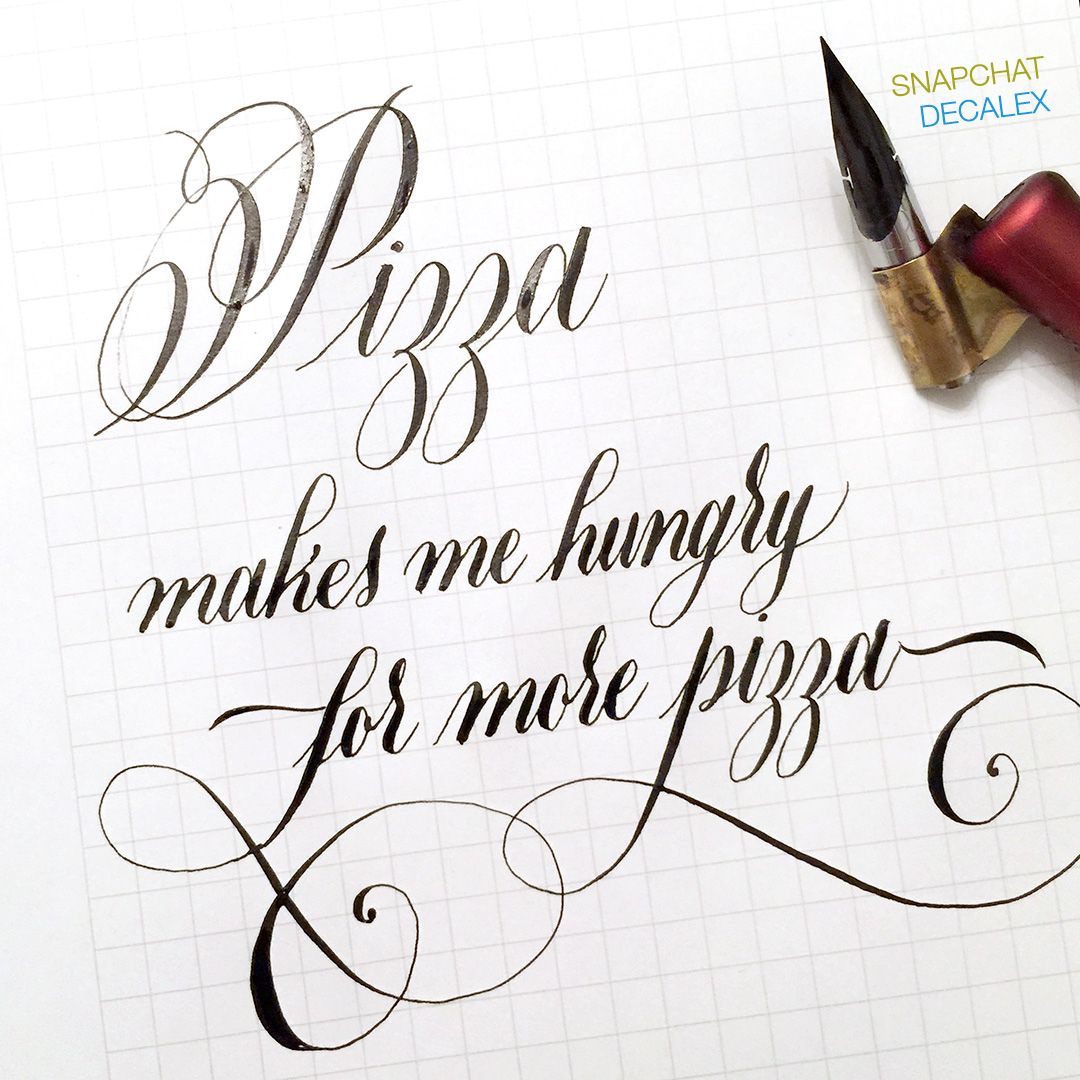 SNAPCHAT
DECALEX
Pizza
makes me hungry
for more pizza